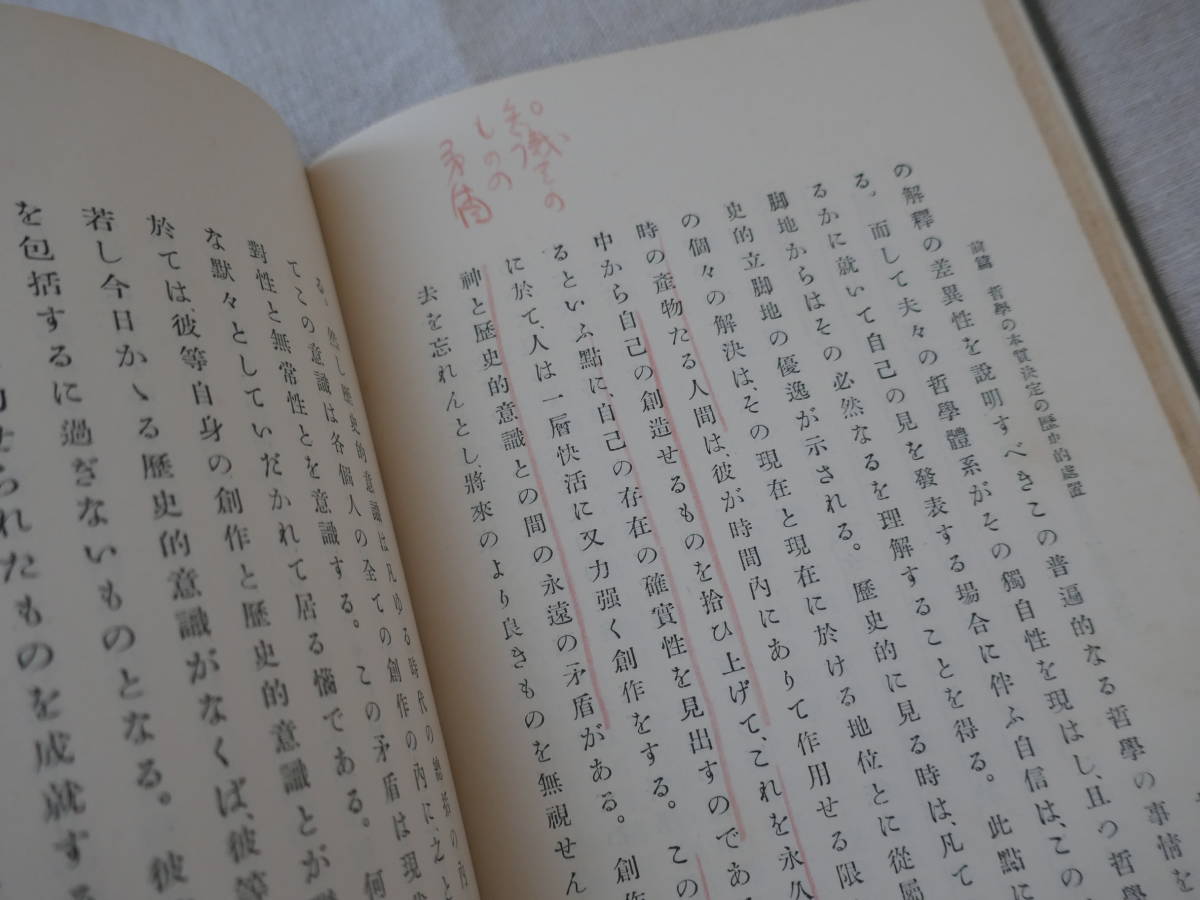 哲學の本質決定の歷史的處置
の解釋の差異性を說明すべきこの普遍的なる哲學の事情を
る。而して夫々の哲學體系がその獨自性を現はし、且つ哲學
るかに就いて自己の見を發表する場合に伴ふ自信は、この
脚地からはその必然なるを理解することを得る。此點に
史的立脚地の優逸が示される。歷史的に見る時は、凡て
の個々の解決は、その現在と現在に於ける地位とに從屬
時の產物たる人間は、彼が時間內にありて作用せる限
中から自己の創造せるものを拾ひ上げて、これを永久
るといふ點に、自己の存在の確實性を見出すのであ
に於て、人は一層快活に又力强く創作をする。この
神と歷史的意識との間の永遠の矛盾がある。創作
去を忘れんとし、將來のより良きものを無視せん
ものの
矛盾
る。然し歷史的意識は凡ゆる時代の總括の內
てこの意識は各個人の全ての創作の內に、之と
對性と無常性とを意識する。この矛盾は現
な默々としていだかれて居る惱である。何
於ては、彼等自身の創作と歷史的意識とが
若し今日かゝる歷史的意識がなくば、彼等
を包括するに過ぎないものとなる。彼
られたものを成就する